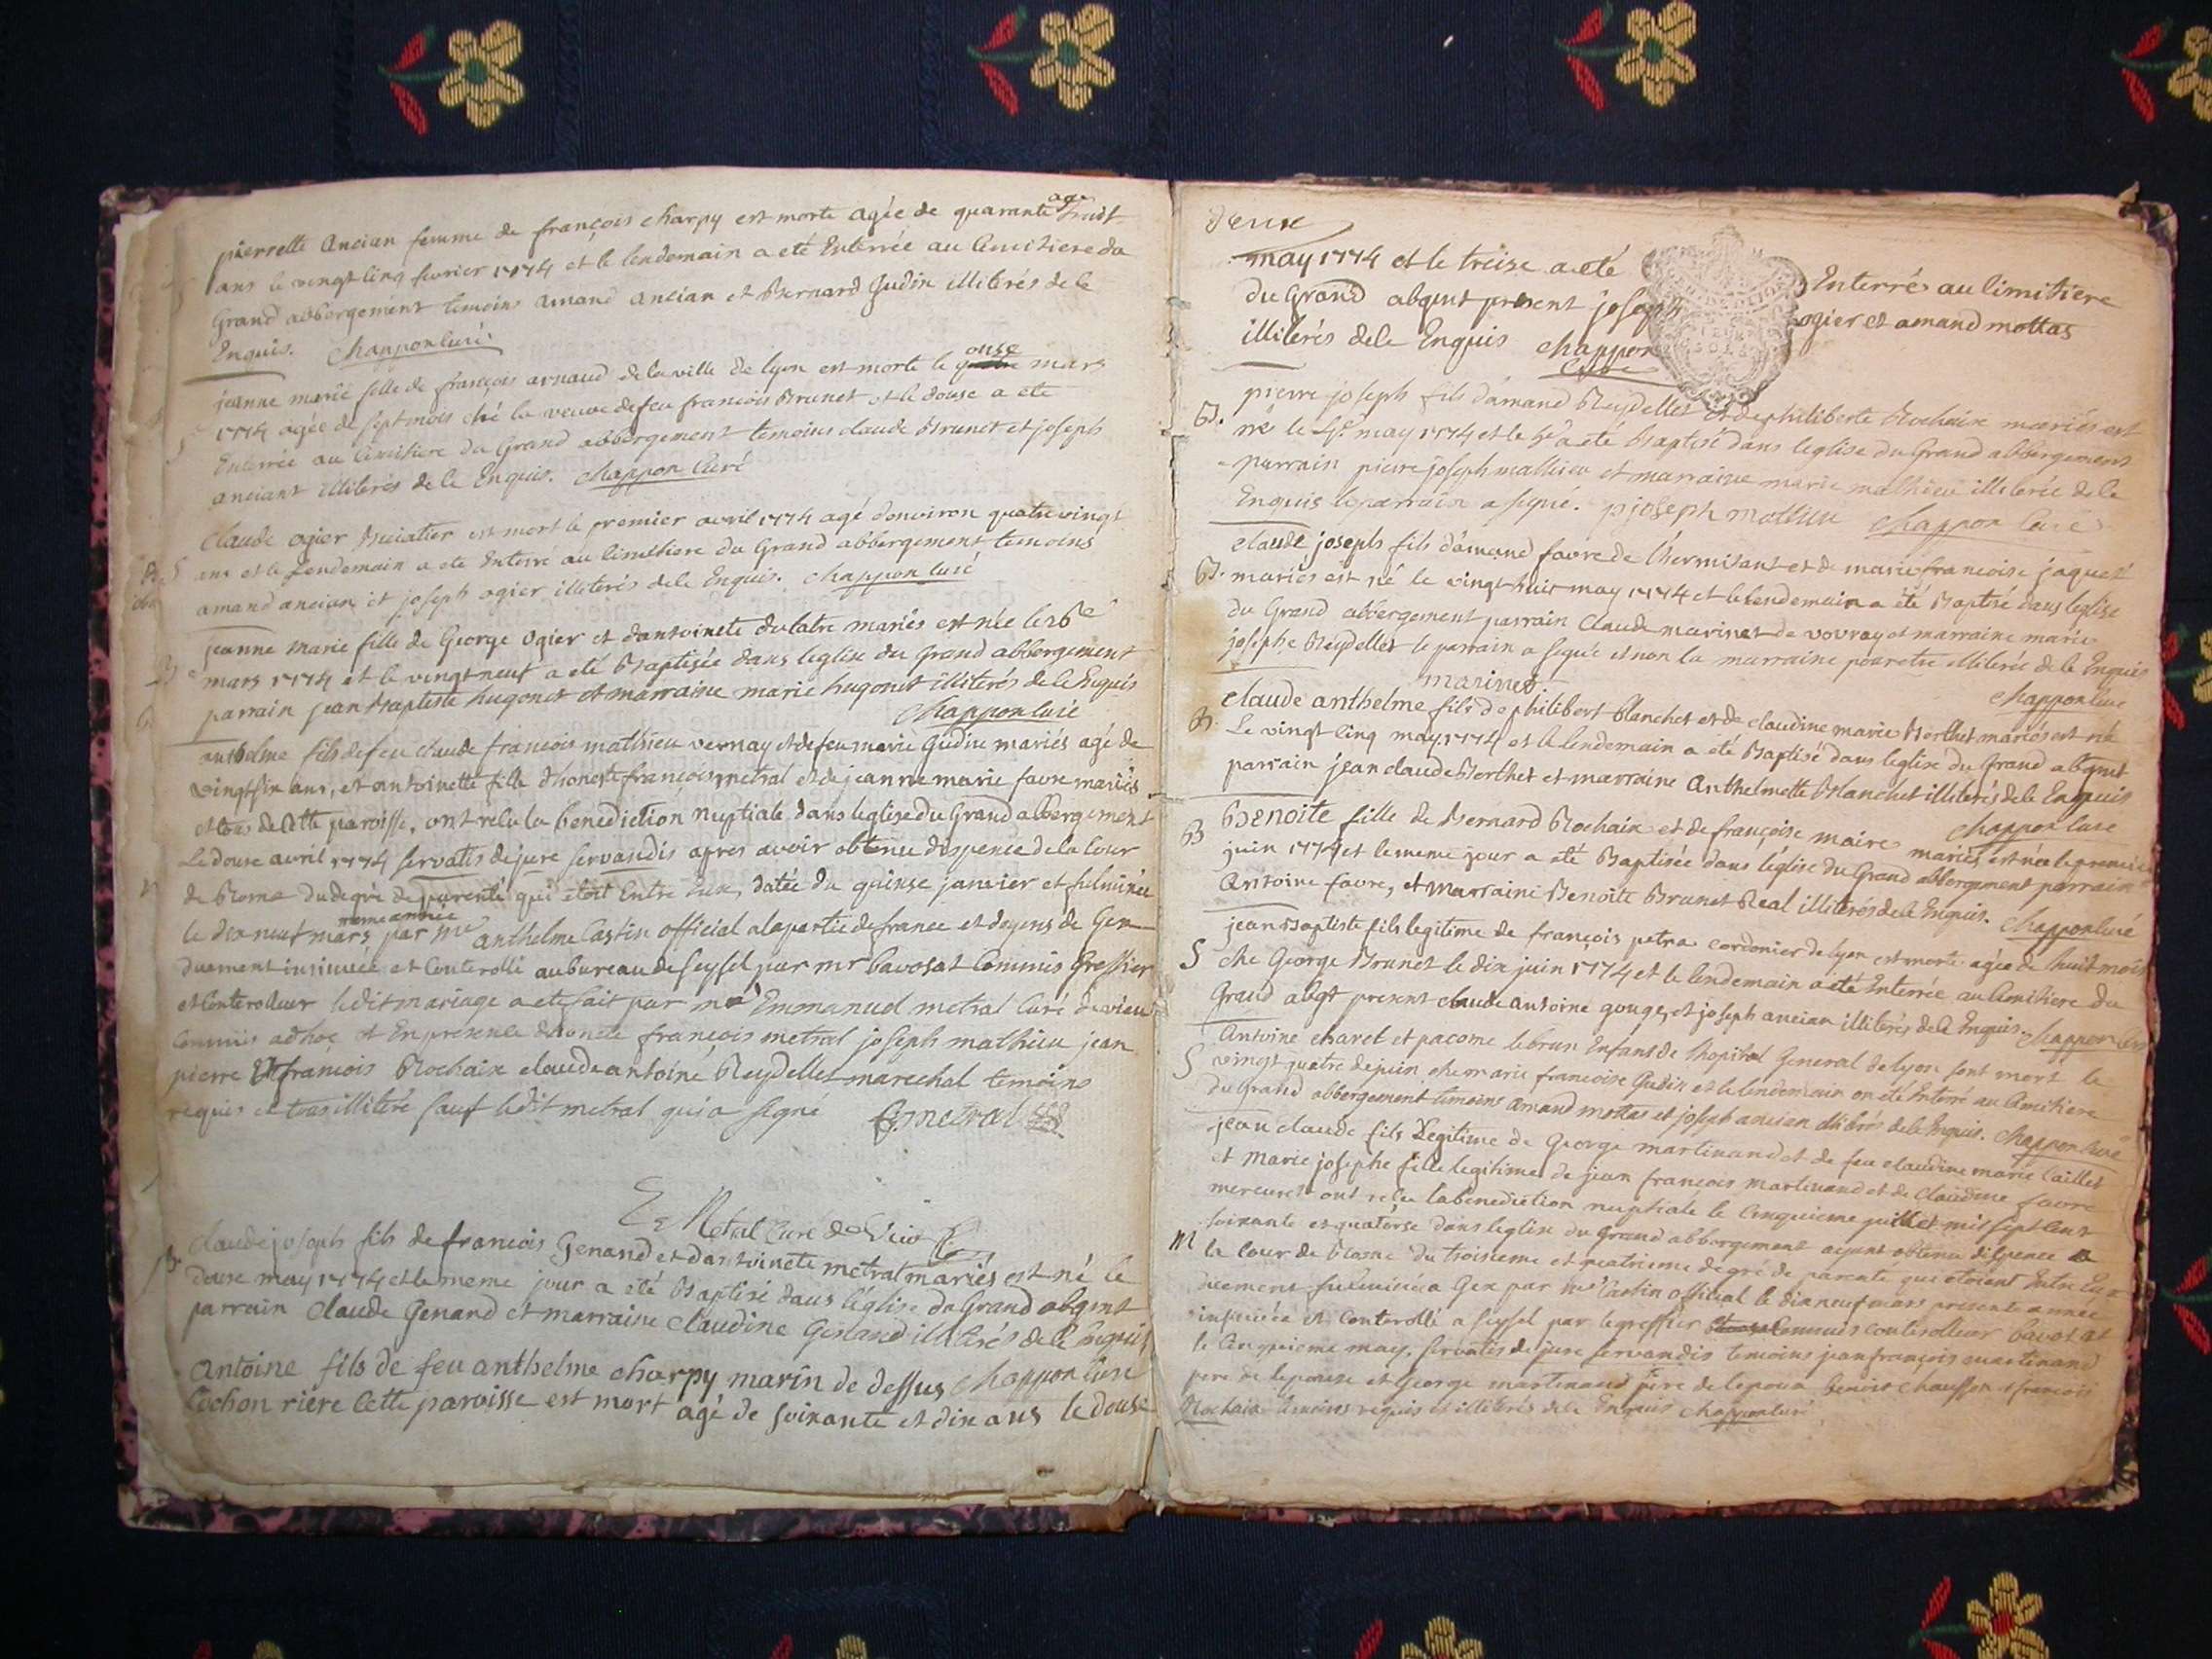 pierrette ancian femme de françois charpy est morte agée de quarante huit
ans le vingt cinq fevrier 1774 et le lendemain a eté Enterrée au Cimitiere du
Grand abbergement temoins amand ancian et Bernard Gudin illiterés de le
Enquis. Chappon curé
jeanne marie fille de françois arnaud de la ville de lyon est morte le onse mars
1774 agée de sept mois ché la veuve de feu francois Brunet et le douse a eté
Enterrée au Cimitiere du Grand abbergement temoins claude Brunet et joseph
anciant illiterés de le Enquis. Chappon Curé
S
Claude ogier est mort le premier avril 1774 agé denviron quatre vingt
ans et le Lendemain a eté Enterré au Cimitiere du Grand abbergement temoins
amand ancian et joseph ogier illiterés de le Enquis. Chappon curé
S
jeanne Marie fille de George Ogier et dantoinete dulatre mariés est née le 26e
mars 1774 et le vingt neuf a eté Baptisée dans leglise du Grand abbergement
parrain jean Baptiste hugonet et marraine marie hugonet illiterés de le Enquis
Chappon curé
B
anthelme fils de feu claude francois mathieu vernay et de feu marie Gudin mariés agé de
vingt six ans, et antoinette fille dhoneste françois metral et de jeanne marie favre mariés
et tous de cette paroisse, ont reçu la benediction Nuptiale dans leglise du Grand abbergement
Le douse avril 1774 servatis de jure servandis apres avoir obtenu dispence de la Cour
de Rome du degré de parenté qui etoit Entre Eux, datée du quinse janvier et fulminée
meme année
le dix neuf mars par me anthelme Castin official a la partie de france et doyens de Gex
duement insinuée et Controllé au bureau de seyssel par mr bavosat Commis Greffier
et Controlleur ledit mariage a eté fait par me Emmanuel metral Curé de vieu
Commis adhoc et En presence dhonete francois metral joseph mathieu jean
pierre et francois Rochaix claude antoine Reydellet marechal temoins
requis et tous illiteré sauf ledit metral qui a signé f. metral
E Metral Curé de Vieu
claude joseph fils de francois Genand et dantoinete metral mariés est né le
douse may 1774 et le meme jour a eté Baptisé dans léglise du Grand abgmt
parrain Claude Genand et marraine Claudine Genand illiterés de le Enquis
Chappon Curé
Antoine fils de feu anthelme charpy marin de dessus
Cochon riere Cette paroisse est mort agé de soixante et dix ans le douse
deux
may 1774 et le treise a eté Enterré au Cimitiere
du Grand abgmt present joseph ogier et amand mottas
illiterés de le Enquis Chappon
Curé
B.
pierre joseph fils damand Reydellet et de philiberte Rochaix mariés est
né le 4e may 1774 et le 5e a eté Baptisé dans leglise du Grand abbergement
parrain pierre joseph mathieu et marraine marie mathieu illiterée de le
Enquis le parrain a signé. p joseph mathieu Chappon Curé
B.
Claude joseph fils damand favre de lhermitant et de marie francoise jaquet
mariés est né le vingt huit may 1774 et le lendemain a été Baptisé dans leglise
du Grand abbergement parrain Claude marinet de vovray et marraine marie
josephe Reydellet le parrain a signé et non la marraine pour etre illiterée de le Enquis
marinet. Chappon curé
B.
Claude anthelme fils de philibert Blanchet et de claudine marie Berthet mariés est né
Le vingt cinq may 1774 et le lendemain a été Baptisé dans leglise du Grand abgmt
parrain jean claude Berthet et marraine Anthelmette Blanchet illiterés de le Enquis
Chappon curé
B
Benoite fille de Bernard Rochaix et de françoise maire mariés est née le premier
juin 1774 et le meme jour a eté Baptisée dans leglise du Grand abbergement parrain
Antoine favre, et marraine Benoite Brunet Real illiterés de le Enquis. Chappon curé
S
jean Baptiste fils legitime de francois petra cordonier de lyon est morte agée de huit mois
ché George Brunet le dix juin 1774 et le lendemain a eté Enterrée au Cimitiere du
Grand abgt present claude antoine gouge, et joseph ancian illiterés de le Enquis. Chappon Curé
S
Antoine charet et pacome lebrun Enfants de lhopital General de lyon sont mort le
vingt quatre de juin ché marie francoise Gudin et le lendemain on eté Enterré au Cimitiere
du Grand abbergement temoins amand mottas et joseph ancian illiterés de le Enquis. Chappon Curé
jean claude fils Legitime de George martinand et de feu claudine marie Caillet
et Marie josephe fille legitime de jean françois martinand et de Claudine favre
mercuret ont reçu la benediction nuptiale le Cinquieme juillet mil sept Cent
soixante et quatorse dans leglise du Grand abbergement ayant obtenu dispence
M
la Cour de Rome du troisieme et quatrieme degré de parenté qui etoient Entre Eux
duement fulminée a Gex par me Castin official le dix neuf mars presente année
insinuée et Controllé a seyssel par le greffier Commis controlleur bavosat
le Cinquieme may. servatis de jure servandis temoins jean françois martinand
pere de lepouse et George martinand pere de lepoux benoit Chausson et francois
Rochaix temoins requis et illiterés de le Enquis Chappon curé